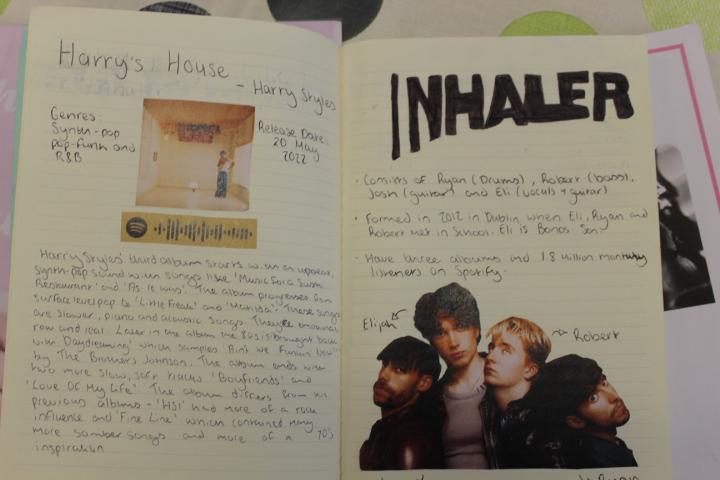 Harry's House
- Harry Styles
Genres:
Synth-pop
pop-funk and
R&B
Release Date:
20 May
2022
Harry Styles' third album starts with an upbeat,
synth-pop sound with songs like 'Music For a Sushi
Restaurant' and 'As it was'. The album progresses from
surface level pop to 'Little Freak' and 'Matilda'. These songs
are slower, piano and acoustic songs. They're emotional,
raw and real. Later in the album the 80s is brought back
with 'Daydreaming' which samples 'Ain't We Funkin' Now'
by The Brothers Johnson. The album ends with
two more slow, soft tracks 'Boyfriends' and
'Love Of My Life'. The album differs from his
previous albums - 'HS1' had more of a rock
influence and 'Fine Line' which contained many
more somber songs and more of a 70's
inspiration
INHALER
· Consists of Ryan (Drums), Robert (bass),
Josh (guitar) and Eli (vocals + guitar)
· Formed in 2012 in Dublin when Eli, Ryan and
Robert met in School. Eli is Bonos Son
· Have three albums and 1.8 million monthly
listeners on Spotify.
Elijah
Robert